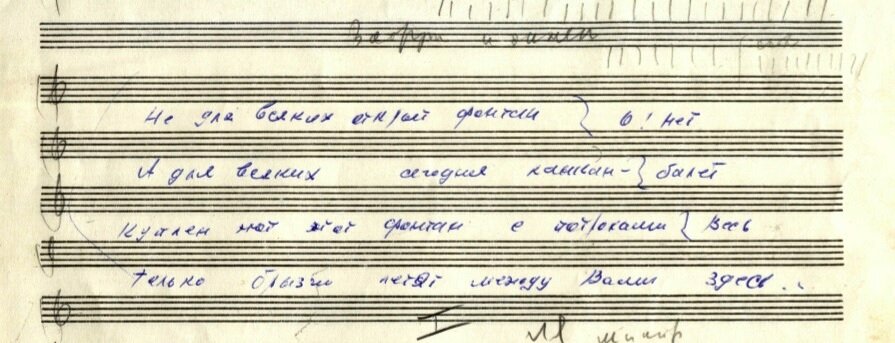 Не для всяких открыт фонтан } О! нет
А для всяких сегодня канкан- } балет
Куплен мой этот фонтан с потрохами } Весь
Только брызги летят между Вами здесь..
I